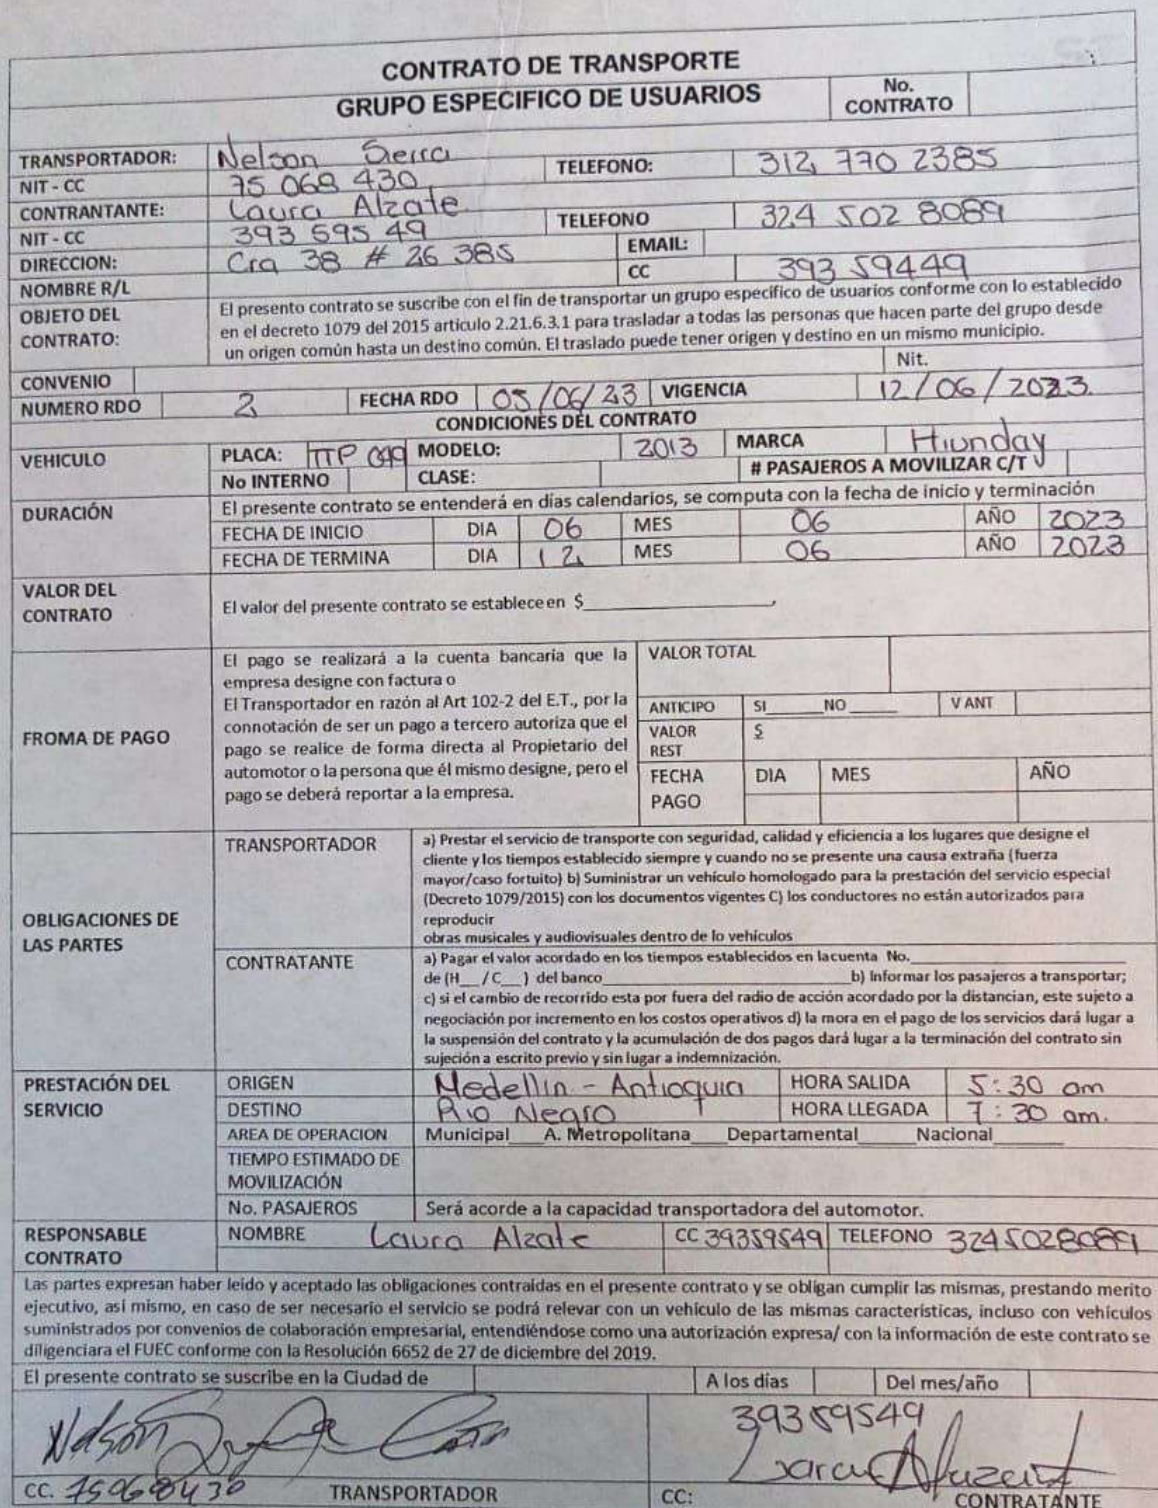 CONTRATO DE TRANSPORTE
GRUPO ESPECIFICO DE USUARIOS
No. CONTRATO
TRANSPORTADOR: Nelson Sierra TELEFONO: 312 770 2385
NIT - CC 75 068 430
CONTRANTANTE: Laura Alzate TELEFONO 324 502 8089
NIT - CC 393 595 49
DIRECCION: Cra 38 # 26 385 EMAIL:
NOMBRE R/L CC 393 59449
OBJETO DEL CONTRATO:
El presento contrato se suscribe con el fin de transportar un grupo especifico de usuarios conforme con lo establecido
en el decreto 1079 del 2015 articulo 2.21.6.3.1 para trasladar a todas las personas que hacen parte del grupo desde
un origen común hasta un destino común. El traslado puede tener origen y destino en un mismo municipio.
CONVENIO Nit.
NUMERO RDO 2 FECHA RDO 05/06/23 VIGENCIA 12/06/2023.
CONDICIONES DEL CONTRATO
VEHICULO PLACA: TTP MODELO: 2013 MARCA Hiunday
No INTERNO CLASE: # PASAJEROS A MOVILIZAR C/T
DURACIÓN El presente contrato se entenderá en días calendarios, se computa con la fecha de inicio y terminación
FECHA DE INICIO DIA 06 MES 06 AÑO 2023
FECHA DE TERMINA DIA 12 MES 06 AÑO 2023
VALOR DEL CONTRATO
El valor del presente contrato se establece en $
FROMA DE PAGO
El pago se realizará a la cuenta bancaria que la
empresa designe con factura o
El Transportador en razón al Art 102-2 del E.T., por la
connotación de ser un pago a tercero autoriza que el
pago se realice de forma directa al Propietario del
automotor o la persona que él mismo designe, pero el
pago se deberá reportar a la empresa.
VALOR TOTAL
ANTICIPO SI____NO____ V ANT
VALOR REST $
FECHA PAGO DIA MES AÑO
OBLIGACIONES DE LAS PARTES
TRANSPORTADOR
a) Prestar el servicio de transporte con seguridad, calidad y eficiencia a los lugares que designe el
cliente y los tiempos establecido siempre y cuando no se presente una causa extraña (fuerza
mayor/caso fortuito) b) Suministrar un vehículo homologado para la prestación del servicio especial
(Decreto 1079/2015) con los documentos vigentes C) los conductores no están autorizados para
reproducir
obras musicales y audiovisuales dentro de lo vehículos
CONTRATANTE
a) Pagar el valor acordado en los tiempos establecidos en lacuenta No.
de (H__/C__) del banco____ b) Informar los pasajeros a transportar;
c) si el cambio de recorrido esta por fuera del radio de acción acordado por la distancian, este sujeto a
negociación por incremento en los costos operativos d) la mora en el pago de los servicios dará lugar a
la suspensión del contrato y la acumulación de dos pagos dará lugar a la terminación del contrato sin
sujeción a escrito previo y sin lugar a indemnización.
PRESTACIÓN DEL SERVICIO
ORIGEN Medellin - Antioquia HORA SALIDA 5:30 am
DESTINO Rio Negro HORA LLEGADA 7:30 am.
AREA DE OPERACION Municipal___A. Metropolitana___Departamental____Nacional____
TIEMPO ESTIMADO DE MOVILIZACIÓN
No. PASAJEROS Será acorde a la capacidad transportadora del automotor.
RESPONSABLE CONTRATO
NOMBRE Laura Alzate CC 39359549 TELEFONO 3245028089
Las partes expresan haber leído y aceptado las obligaciones contraídas en el presente contrato y se obligan cumplir las mismas, prestando merito
ejecutivo, asi mismo, en caso de ser necesario el servicio se podrá relevar con un vehículo de las mismas características, incluso con vehículos
suministrados por convenios de colaboración empresarial, entendiéndose como una autorización expresa/ con la información de este contrato se
diligenciara el FUEC conforme con la Resolución 6652 de 27 de diciembre del 2019.
El presente contrato se suscribe en la Ciudad de A los días Del mes/año
Nelson
39359549
CC. 75068430 TRANSPORTADOR CC: CONTRATANTE